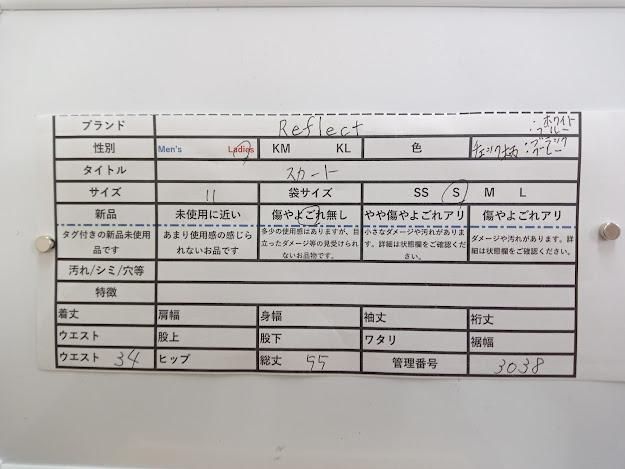 ブランド Reflect :ホワイト
:ブルー
性別 Men's Ladies KM KL 色 チェック柄 :ブラック
:グレー
タイトル スカート
サイズ 11 袋サイズ SS S M L
新品 未使用に近い 傷やよごれ無し やや傷やよごれアリ 傷やよごれアリ
タグ付きの新品未使用 あまり使用感の感じら 多少の使用感はありますが、目 小さなダメージや汚れがありま ダメージや汚れがあります。詳
品です れないお品です 立ったダメージ等の見受けられ す。詳細は状態欄をご確認くだ 細は状態欄をご確認ください。
ないお品物です。 さい。
汚れ/シミ/穴等
特徴
着丈 肩幅 身幅 袖丈 裄丈
ウエスト 股上 股下 ワタリ 裾幅
ウエスト 34 ヒップ 総丈 55 管理番号 3038